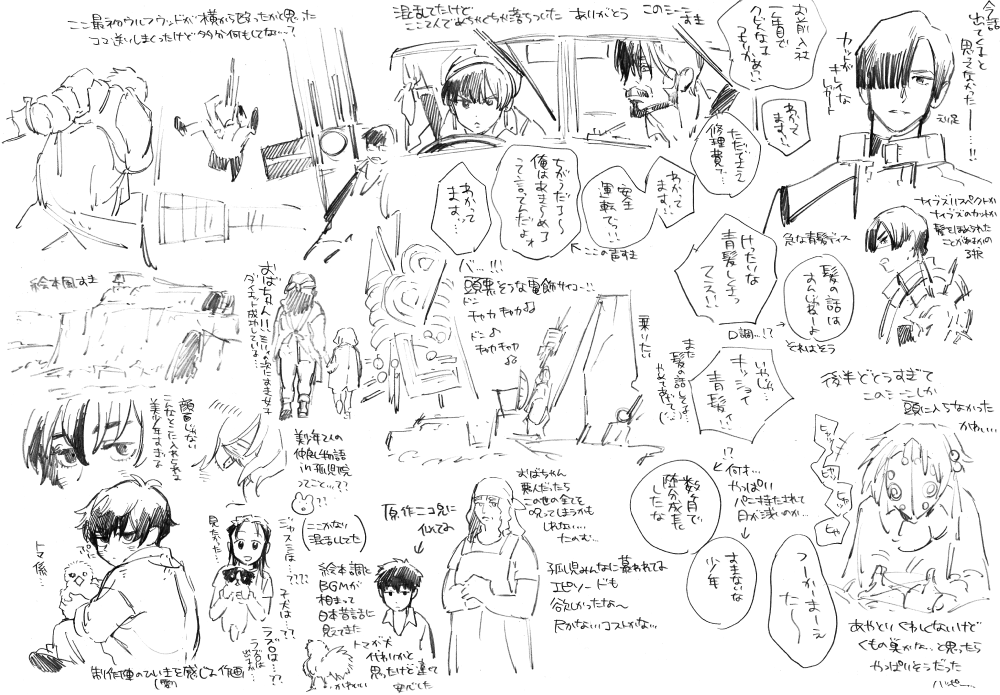 ここ最ネウルフウッドが横から殴ったかと思った
コマ送りしまくったけど多分何もしてない…?
混乱してたけど
ここでんでめちゃくちゃ落ちついた ありがとう
このシーン
すき
お前入社
一年目で
クビになる
つもりかぁ!!
今話
出てくると
思えなかったーー…!!
カットが
キレイな
えり足
わかって
ます…!
ただでさえ
修理費で…
わかって
ます…!
安全
運転で…!!
ちがうだろ〜
俺はあきらめろ
って言ってんだよォ
わかって
ますッ…!
ここの声すき
急な青髪ディス
けったいな
青髪しよって
てエ!!
髪の話は
すんじゃねーよ
それはそう
D調…!?
いやじゃ…
ナッシュで
青髪ィ!!
また
髪の話してる…
ナイブズリスペクトか
ナイブズのカットか
髪をほめられた
ことがあるかの
3択
絵本風すき
おばちゃん!!
ダイエット成功しているよ…
バ…!!!
頭悪そうな電飾サイコー!!
ドン
チャカ チャカ♪
ドン♪
チャカチャカ
♪
乗りたい
後半どうすぎて
このシーンしか
頭に入らなかった
かわいい…
ヒャッ
ヒャッ
ヒャッ
ヒャ
顔面じゃない
こんなとこに入れられる
美少年すきっ…
美少年2人の
仲良し物語
in孤児院
ってこと…??
ここがない
混乱してた
原作ニコ兄に
似てる
おばちゃん
悪人だったら
この世の全てを
呪ってしまうかも
しれない…
たのむ…
!?
何才…
やっぱい
パニ持たされて
日が浅いのか…
数ヶ月で
随分成長
したな
すまないな
少年
つーかーまーえ
たー
トマ係…
見たかった…
ジャスミンは…???
子犬は…??
ラズロは…??
ラズロは
絵本調と
BGMが
相まって
日本昔話に
見えてきた
トマが犬
代わりかと
思ったけど違て
安心した
かわいい
孤児みんなに慕われてる
エピソードも
欲しかったな〜
尺がないコストがない…
制作陣のひいきを感じる作画
あやとりくわしくないけど
くもの巣かな…と思ったら
やっぱいそうだった
ハッピー…